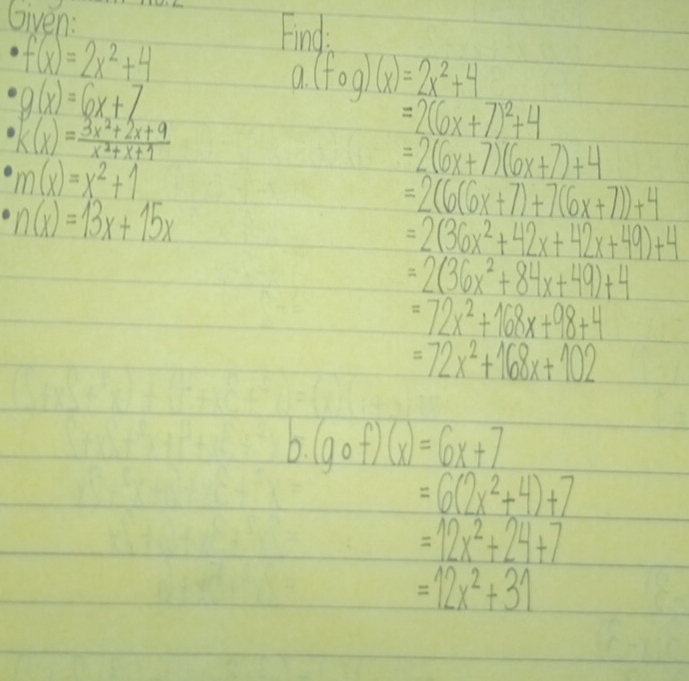 Given:
• f(x) = 2x² + 4
• g(x) = 6x + 7
• k(x) = 3x² + 2x + 9 / x² + x + 1
• m(x) = x² + 1
• n(x) = 13x + 15x
Find:
a. (f ∘ g)(x) = 2x² + 4
= 2(6x + 7)² + 4
= 2(6x + 7)(6x + 7) + 4
= 2(6(6x + 7) + 7(6x + 7)) + 4
= 2(36x² + 42x + 42x + 49) + 4
= 2(36x² + 84x + 49) + 4
= 72x² + 168x + 98 + 4
= 72x² + 168x + 102
b. (g ∘ f)(x) = 6x + 7
= 6(2x² + 4) + 7
= 12x² + 24 + 7
= 12x² + 31